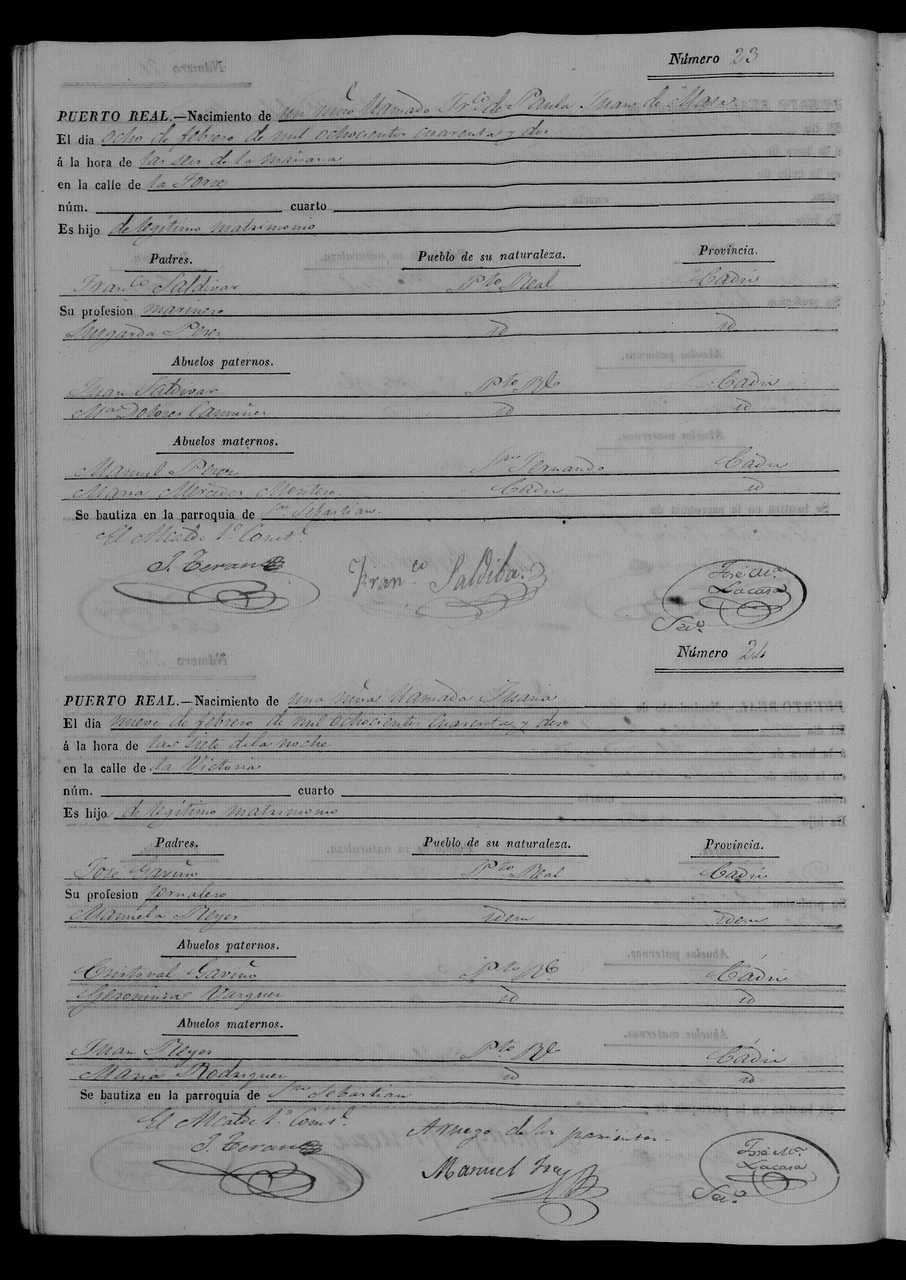 Número 23
PUERTO REAL.—Nacimiento de un niño llamado Frco. de Paula Juan de Mata
El dia ocho de febrero de mil ochocientos cuarenta y dos
á la hora de las seis de la mañana
en la calle de la Torre
núm. cuarto
Es hijo de legítimo matrimonio
Padres. Pueblo de su naturaleza. Provincia.
Franco Saldivar Pto Real Cadiz
Su profesion marinero
Luegarda Perez id id
Abuelos paternos.
Juan Saldivar Pto Rl Cadiz
Ma Dolores id id
Abuelos maternos.
Manuel Perez Sn Fernando Cadiz
Maria Mercedes Montero Cadiz id
Se bautiza en la parroquia de Sn Sebastian.
El Alcalde 1º Constl.
J. Teran
Franco Saldiba.
José Ma.
Lacasa
Seco.
Número 24
PUERTO REAL.—Nacimiento de una niña llamada Juana
El dia nueve de febrero de mil ochocientos cuarenta y dos
á la hora de las siete de la noche
en la calle de la Victoria
núm. cuarto
Es hijo de legítimo matrimonio
Padres. Pueblo de su naturaleza. Provincia.
José Gaviño Pto Real Cadiz
Su profesion jornalero
Manuela Reyes idem idem
Abuelos paternos.
Cristoval Gaviño Pto Rl Cádiz
Geronima Vargues id id
Abuelos maternos.
Juan Reyes Pto Rl Cádiz
Maria Rodriguez id id
Se bautiza en la parroquia de Sn Sebastian
El Alcalde 1º Constl.
J. Teran
A ruego de los parientes.
Manuel
José Ma.
Lacasa
Seco.